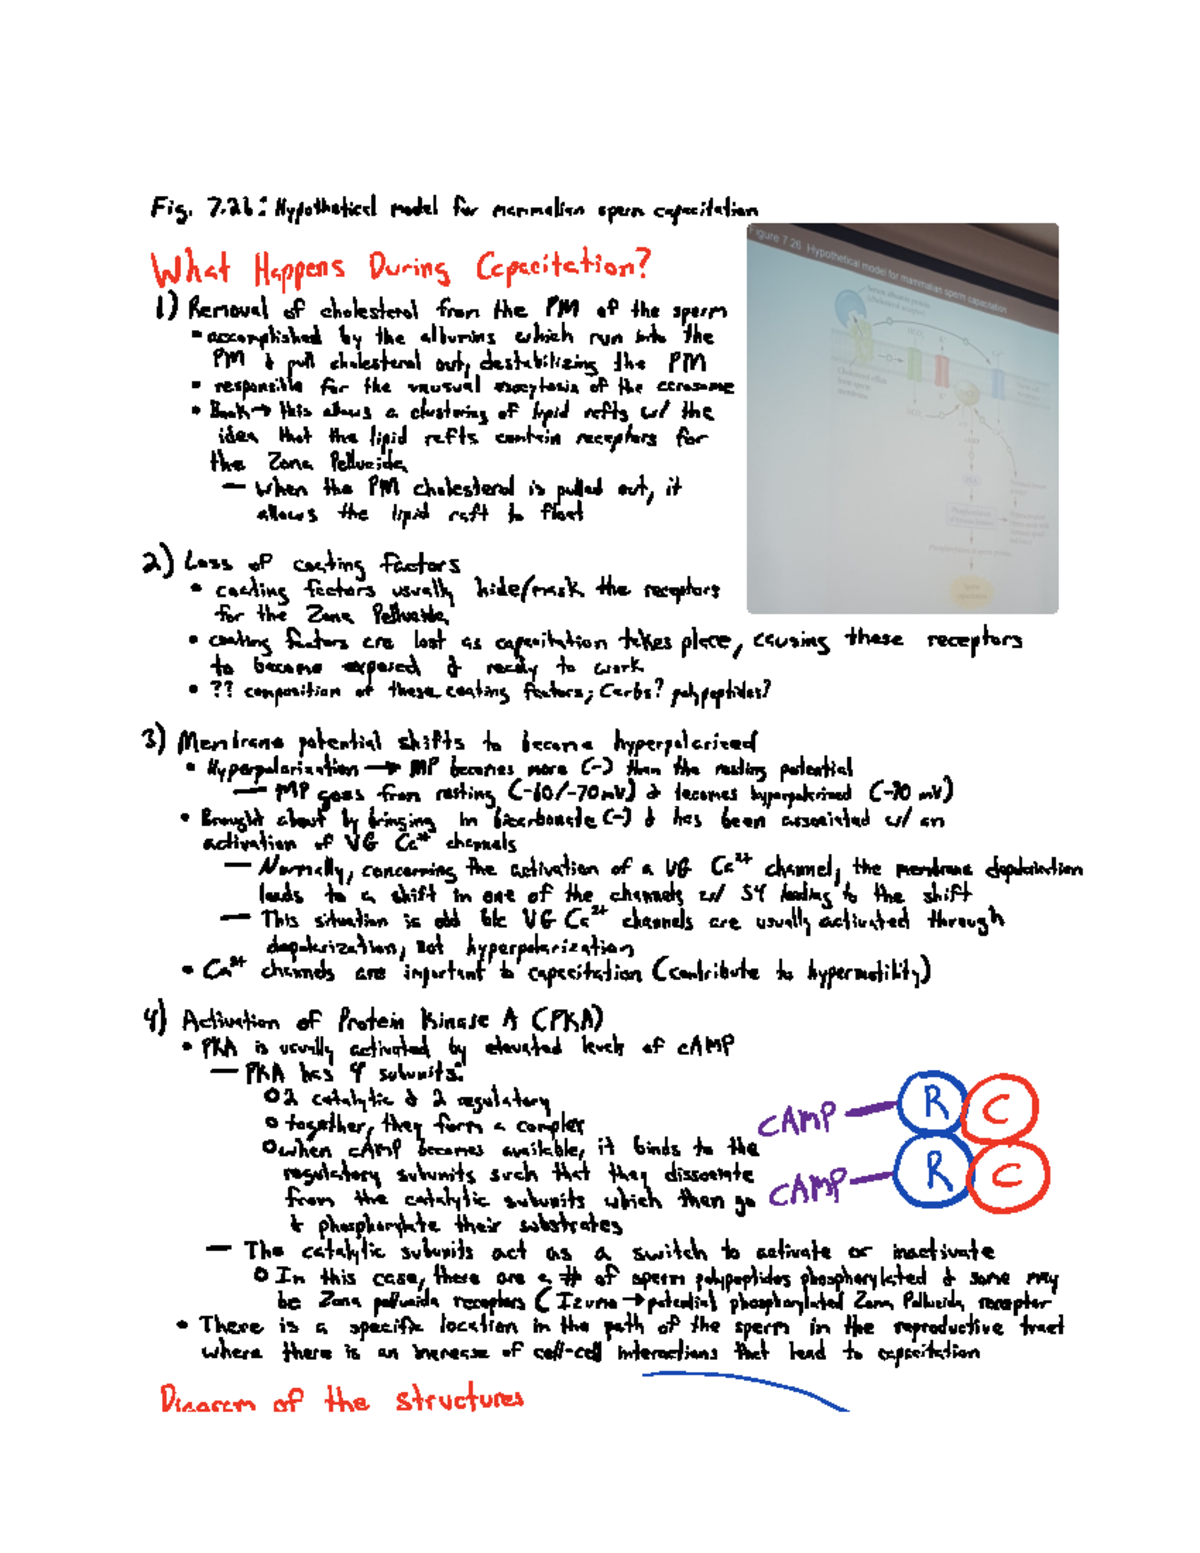 Fig. 7.26: Hypothetical model for mammalian sperm capacitation
Figure 7.26 Hypothetical model for mammalian sperm capacitation
What Happens During Capacitation?
1) Removal of cholesterol from the PM of the sperm
accomplished by the albumins which run into the
PM & pull cholesterol out, destabilizing the PM
responsible for the unusual exocytosis of the acrosome
Book → this allows a clustering of lipid rafts w/ the
idea that the lipid rafts contain receptors for
the Zona Pellucida
— When the PM cholesterol is pulled out, it
allows the lipid raft to float
2) Loss of coating factors
• coating factors usually hide/mask the receptors
for the Zona Pellucida
• coating factors are lost as capacitation takes place, causing these receptors
to become exposed & ready to work
• ?? composition of these coating factors; Carbs? polypeptides?
3) Membrane potential shifts to become hyperpolarized
• Hyperpolarization → MP becomes more (-) than the resting potential
— MP goes from resting (-60/-70mV) & becomes hyperpolarized (-90 mV)
• Brought about by bringing in bicarbonate (-) & has been associated w/ an
activation of VG Ca²⁺ channels
— Normally, concerning the activation of a VG Ca²⁺ channel, the membrane depolarization
leads to a shift in one of the channels w/ S4 leading to the shift
— This situation is odd b/c VG Ca²⁺ channels are usually activated through
depolarization, not hyperpolarization
• Ca²⁺ channels are important to capacitation (contribute to hypermotility)
4) Activation of Protein Kinase A (PKA)
• PKA is usually activated by elevated levels of cAMP
— PKA has 4 subunits:
○ 2 catalytic & 2 regulatory
○ together, they form a complex
○ when cAMP becomes available, it binds to the
regulatory subunits such that they dissociate
from the catalytic subunits which then go
& phosphorylate their substrates
cAMP R C
cAMP R C
— The catalytic subunits act as a switch to activate or inactivate
○ In this case, there are a # of sperm polypeptides phosphorylated & some may
be Zona pellucida receptors (Izumo → potential phosphorylated Zona Pellucida receptor
• There is a specific location in the path of the sperm in the reproductive tract
where there is an increase of cell-cell interactions that lead to capacitation
Diagram of the structures